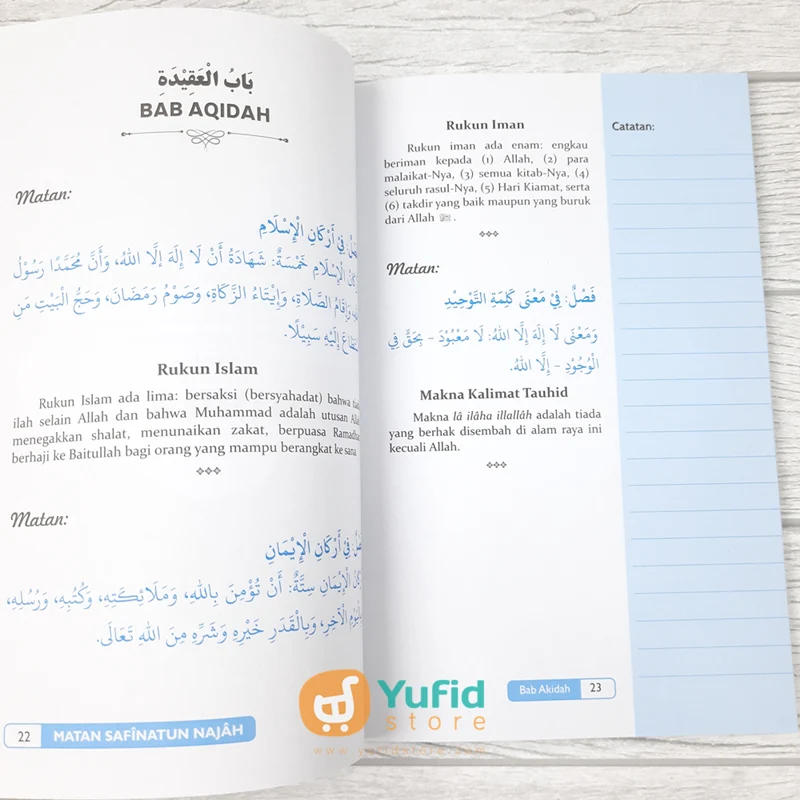 بَابُ الْعَقِيْدَةِ
BAB AQIDAH
Matan:
فِيْ أَرْكَانِ الْإِسْلَامِ
الْإِسْلَامِ خَمْسَةٌ: شَهَادَةُ أَنْ لَا إِلَهَ إِلَّا اللهُ، وَأَنَّ مُحَمَّدًا رَسُوْلُ
وَإِقَامُ الصَّلَاةِ، وَإِيْتَاءُ الزَّكَاةِ، وَصَوْمُ رَمَضَانَ، وَحَجُّ الْبَيْتِ مَنِ
إِلَيْهِ سَبِيْلًا.
Rukun Islam
Rukun Islam ada lima: bersaksi (bersyahadat) bahwa
ilah selain Allah dan bahwa Muhammad adalah utusan
menegakkan shalat, menunaikan zakat, berpuasa
berhaji ke Baitullah bagi orang yang mampu berangkat ke sana
Matan:
فِيْ أَرْكَانِ الْإِيْمَانِ
الْإِيْمَانِ سِتَّةٌ: أَنْ تُؤْمِنَ بِاللهِ، وَمَلَائِكَتِهِ، وَكُتُبِهِ، وَرُسُلِهِ،
الْآخِرِ، وَبِالْقَدَرِ خَيْرِهِ وَشَرِّهِ مِنَ اللهِ تَعَالَى.
22 MATAN SAFÎNATUN NAJÂH
Rukun Iman
Rukun iman ada enam: engkau
beriman kepada (1) Allah, (2) para
malaikat-Nya, (3) semua kitab-Nya, (4)
seluruh rasul-Nya, (5) Hari Kiamat, serta
(6) takdir yang baik maupun yang buruk
dari Allah .
Matan:
فَصْلٌ: فِيْ مَعْنَى كَلِمَةِ التَّوْحِيْدِ
وَمَعْنَى لَا إِلَهَ إِلَّا اللهُ: لَا مَعْبُوْدَ – بِحَقٍّ فِي
الْوُجُوْدِ – إِلَّا اللهُ.
Makna Kalimat Tauhid
Makna lâ ilâha illallâh adalah tiada
yang berhak disembah di alam raya ini
kecuali Allah.
Bab Akidah 23
Catatan:
Yufid
store